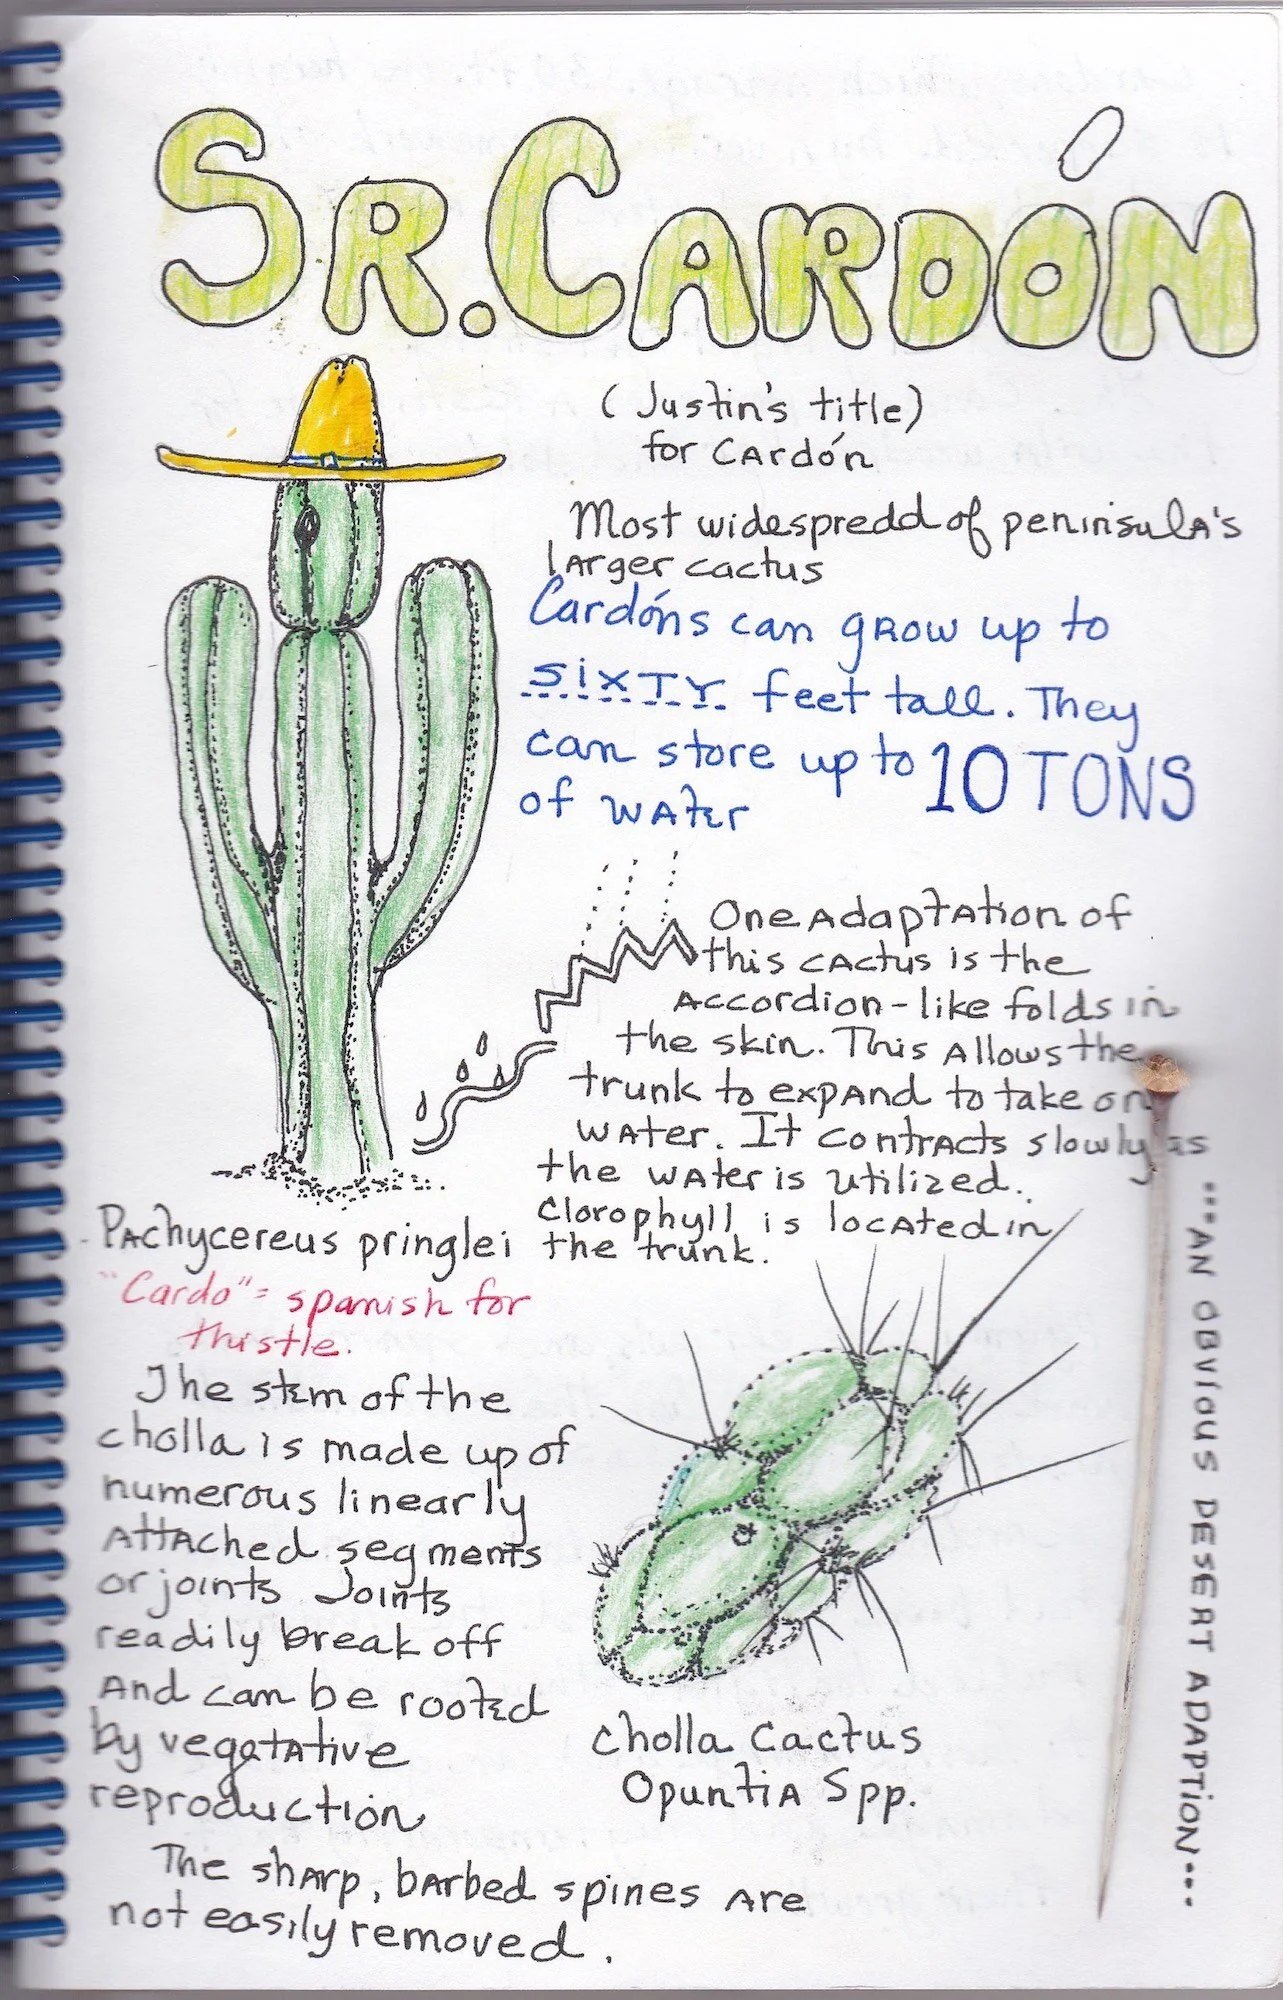 Sr. Cardón
(Justin's title)
for Cardón
Most widespredd of peninsula's
larger cactus
Cardóns can grow up to
SIXTY feet tall. They
can store up to 10 TONS
of water
One adaptation of
this cactus is the
accordion-like folds in
the skin. This allows the
trunk to expand to take on
water. It contracts slowly as
the water is utilized.
Clorophyll is located in
the trunk.
Pachycereus pringlei
"Cardo" = spanish for
thistle.
The stem of the
cholla is made up of
numerous linearly
attached segments
or joints Joints
readily break off
and can be rooted
by vegatative
reproduction
The sharp, barbed spines are
not easily removed.
cholla Cactus
Opuntia Spp.
...AN OBVIOUS DESERT ADAPTION...